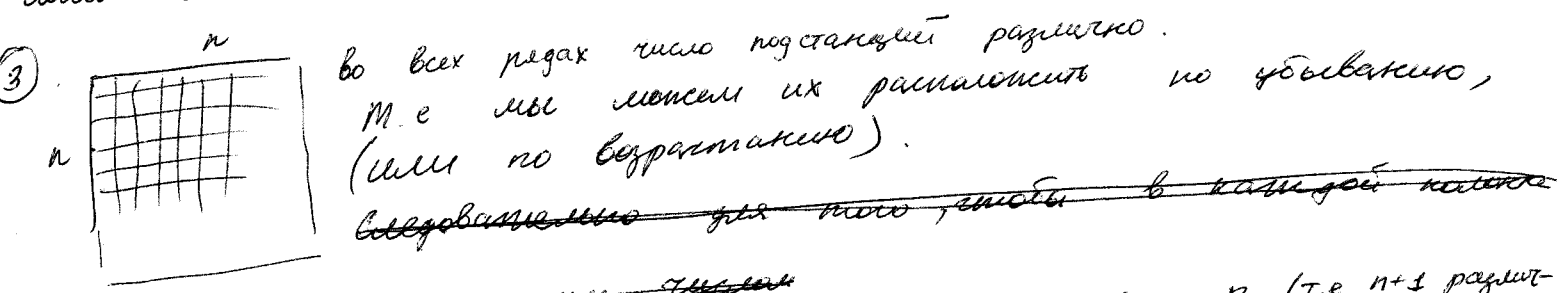 ③ n во всех рядах число подстанций различно.
Т.е мы можем их расположить по убыванию,
n (или по возрастанию).
Следовательно для того, чтобы в каждой
числом n (т.е n+1 различ-